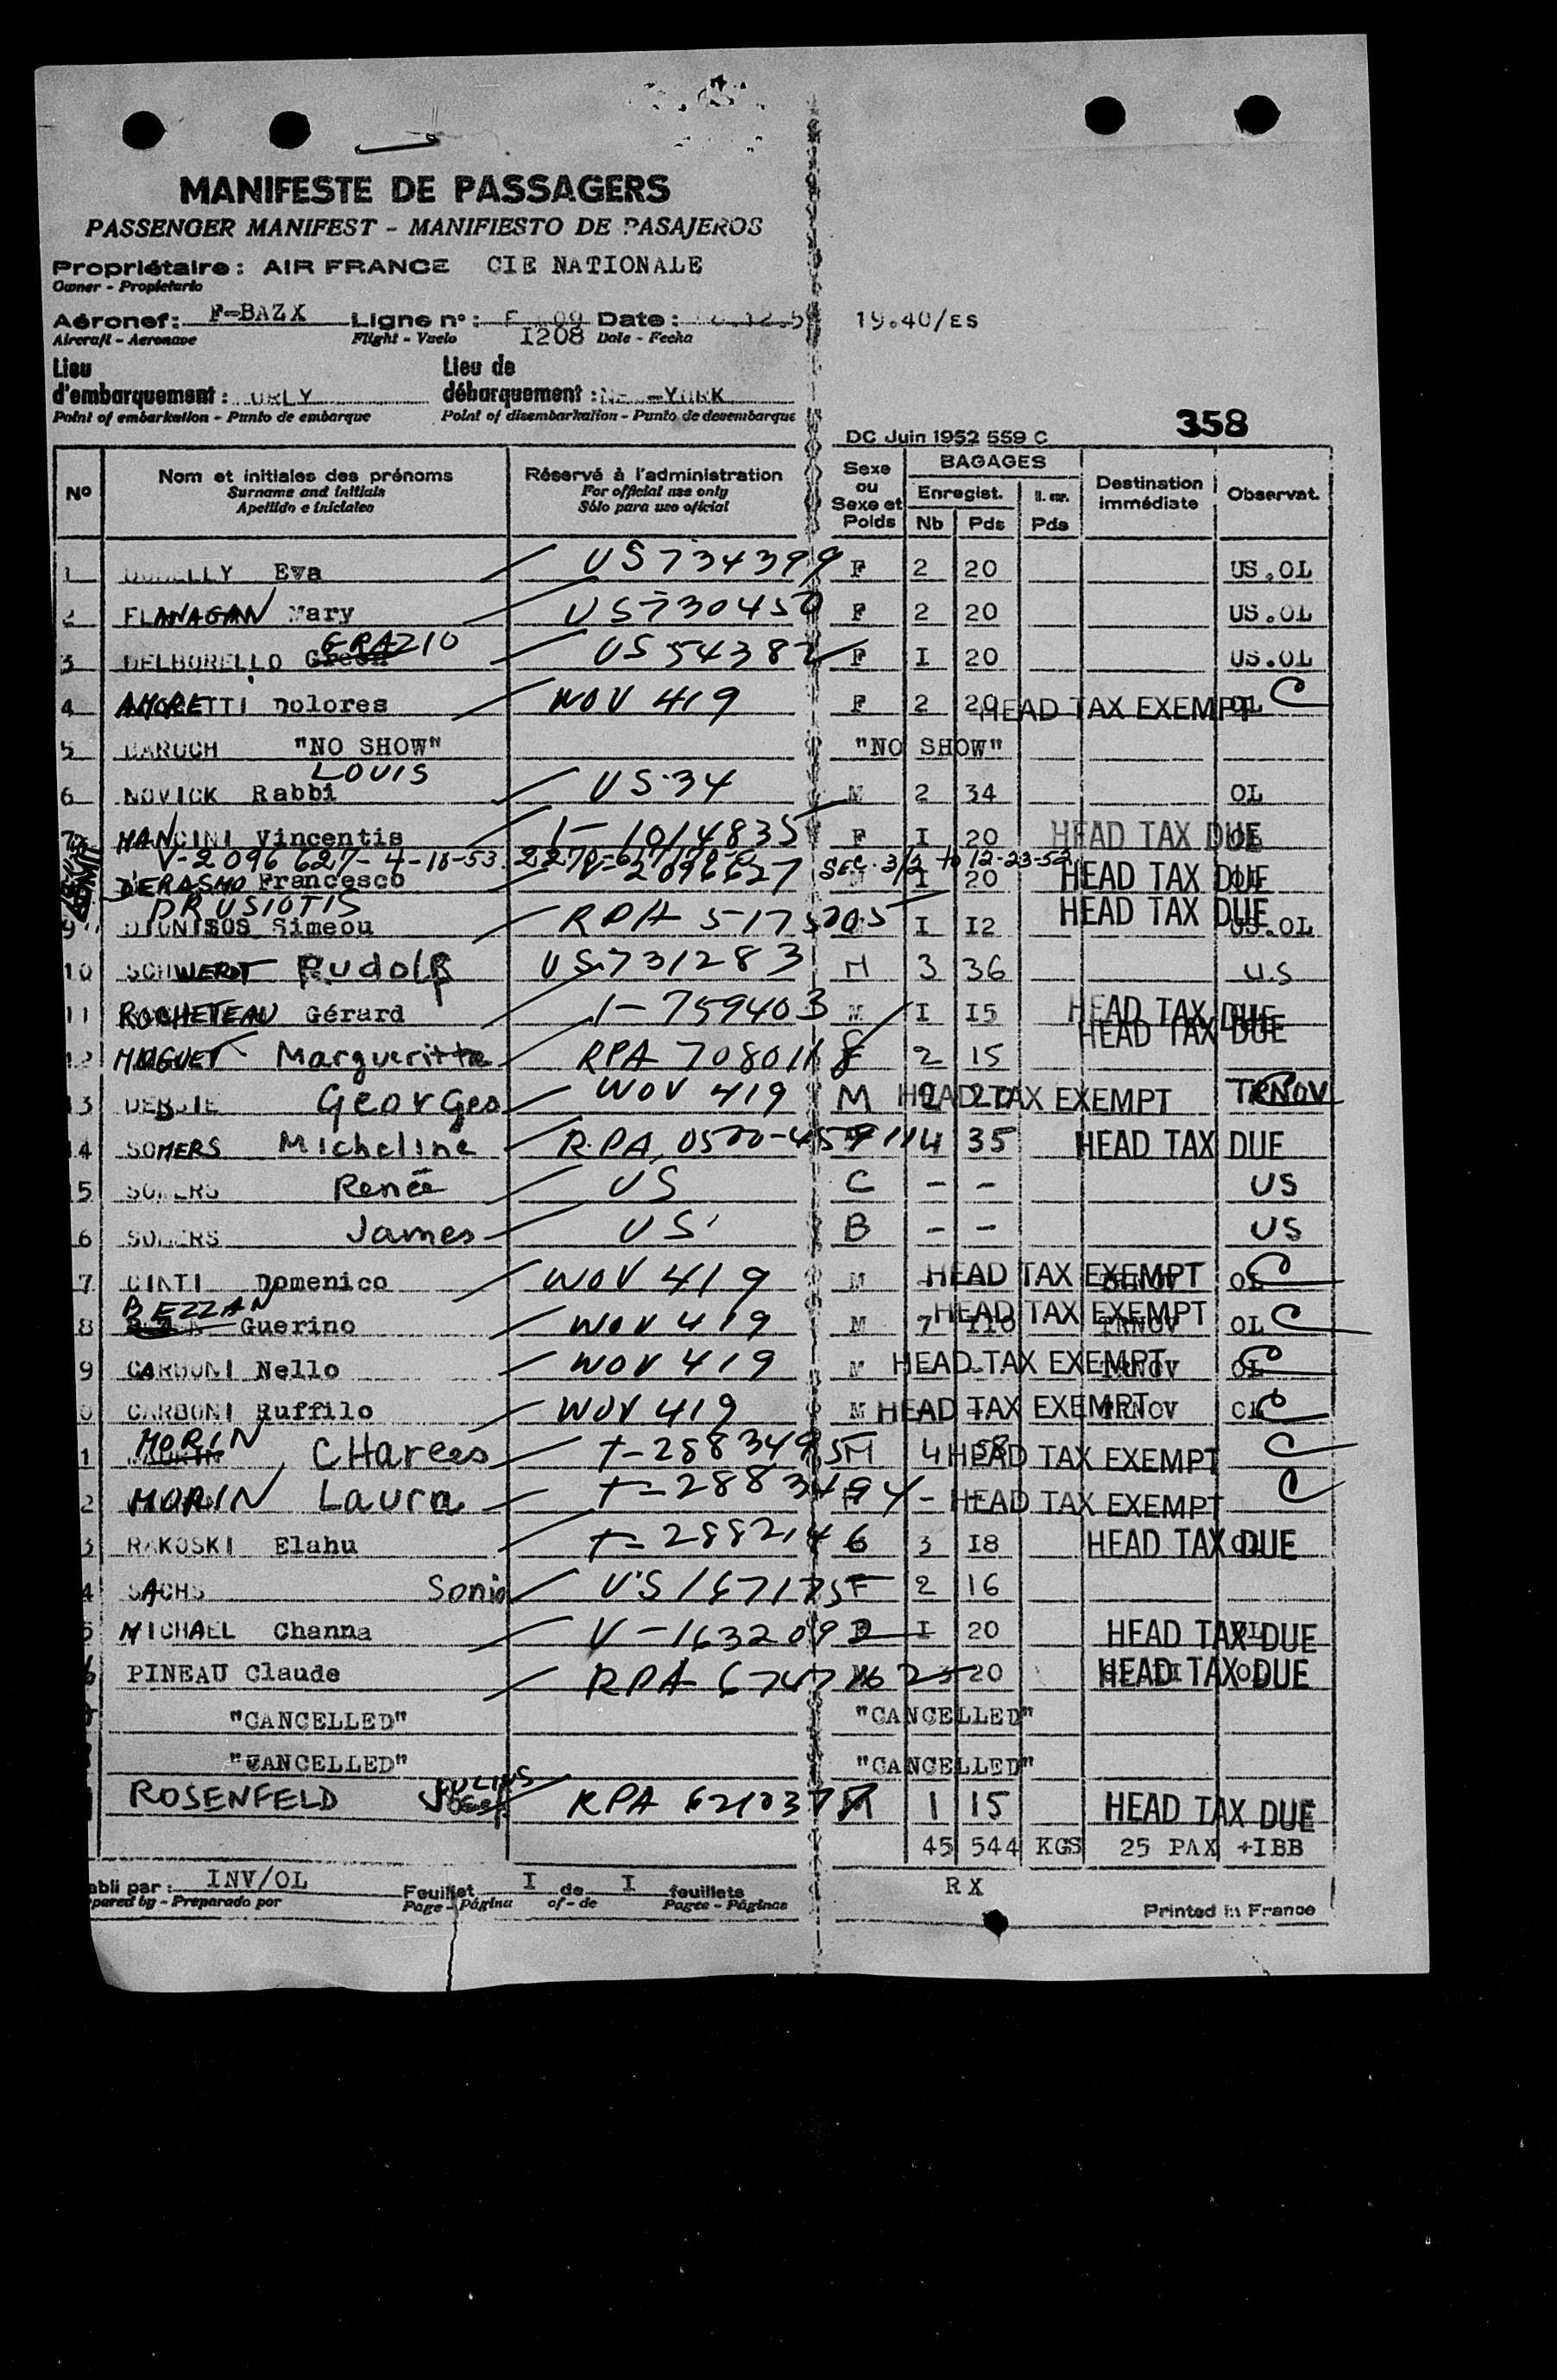 MANIFESTE DE PASSAGERS
PASSENGER MANIFEST - MANIFIESTO DE PASAJEROS
Propriétaire : AIR FRANCE CIE NATIONALE
Owner - Propietario
Aéronef : F-BAZX Ligne n° : Date : 19.40/ES
Aircraft - Aeronave Flight - Vuelo I208 Date - Fecha
Lieu Lieu de
d'embarquement : ORLY débarquement : NEW-YORK
Point of embarkation - Punto de embarque Point of disembarkation - Punto de desembarque
358
DC Juin 1952 559 C
Nº Nom et initiales des prénoms Réservé à l'administration Sexe ou Sexe et Poids BAGAGES Destination immédiate Observat.
Surname and initials For official use only Enregist. n. enr.
Apellido e iniciales Sólo para uso oficial Nb Pds Pds
1 Eva US 734399 F 2 20 US.OL
2 FLANAGAN Mary US 730450 F 2 20 US.OL
GRAZIO
3 DELBORELLO US 54382 F I 20 US.OL
4 AMORETTI Dolores WOV 419 F 2 20 HEAD TAX EXEMPT OL C
5 BARUCH "NO SHOW" "NO SHOW"
LOUIS
6 NOVICK Rabbi US 34 M 2 34 OL
7 MANCINI Vincentis I-1014835 F I 20 HEAD TAX DUE
V-2096627-4-18-53
D'ERASMO Francesco V-2096627 SEC. 3/2 to 12-23-52 I 20 HEAD TAX DUE
DRUSIOTIS
9 DIONISOS Simeou RPA I I2 HEAD TAX DUE US.OL
10 SCHWERDT Rudolf US 731283 M 3 36 U.S
11 ROCHETEAU Gérard I-759403 M I I5 HEAD TAX DUE
12 Margueritte RPA F 2 15 HEAD TAX DUE
13 Georges WOV 419 M 2 20 HEAD TAX EXEMPT TRNOV
14 SOMERS Micheline RPA 4 35 HEAD TAX DUE
5 SOMERS Renée US C - - US
6 SOMERS James US B - - US
7 CINTI Domenico WOV 419 M HEAD TAX EXEMPT TRNOV OL C
BEZZAN
8 Guerino WOV 419 M 7 110 HEAD TAX EXEMPT TRNOV OL C
9 CARBONI Nello WOV 419 M HEAD TAX EXEMPT TRNOV OL C
0 CARBONI Ruffilo WOV 419 M HEAD TAX EXEMPT TRNOV OL C
MORIN
1 CHarles T-2883495 M 4 58 HEAD TAX EXEMPT C
2 MORIN Laura T-2883494 - HEAD TAX EXEMPT C
3 RAKOSKI Elahu T-2882146 3 I8 HEAD TAX DUE
4 SACHS Sonia US 167175 F 2 16
5 MICHAEL Channa V-1632092 I 20 HEAD TAX DUE
6 PINEAU Claude RPA 20 HEAD TAX DUE
"CANCELLED" "CANCELLED"
"CANCELLED" "CANCELLED"
JULIUS
ROSENFELD RPA M 1 15 HEAD TAX DUE
45 544 KGS 25 PAX +IBB
abli par : INV/OL Feuillet I de I feuillets RX
pared by - Preparado por Page - Página of - de Pages - Páginas Printed in France